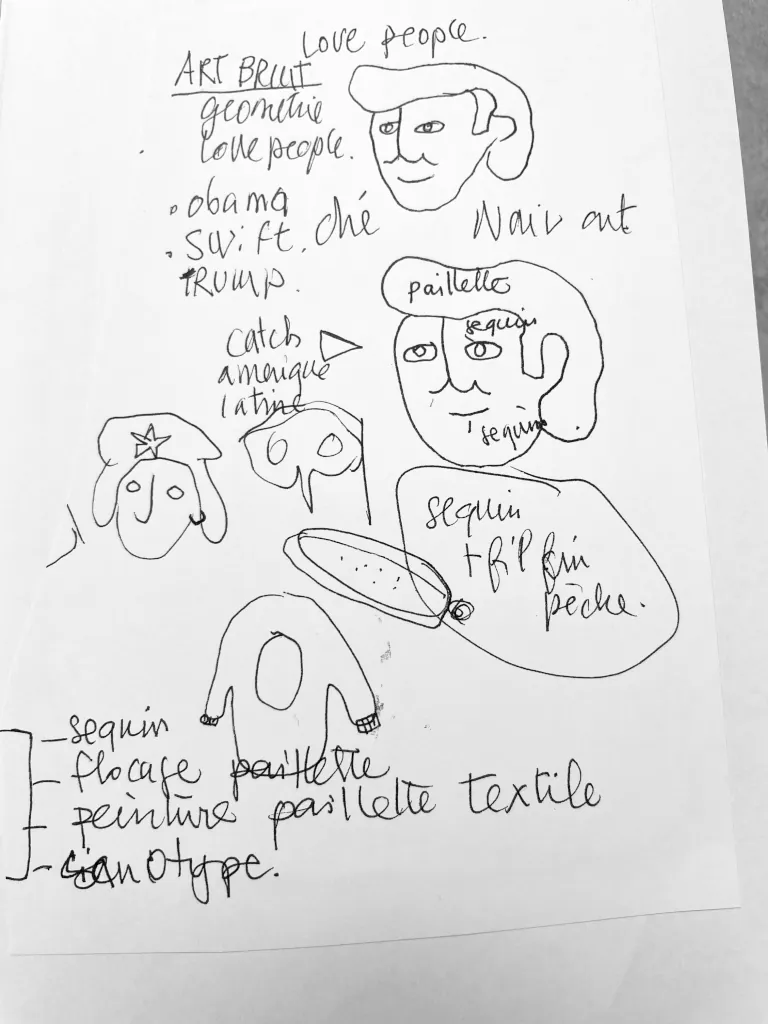 Love people.
ART BRUT
geometrie
love people.
. obama
. swift. ché
TRUMP.
Naiv art
paillette
sequin
catch
amerique
latine
sequin
sequin
+ fil fin
pêche.
- sequin
- flocage paillette
- peinture paillette textile
- cianotype.